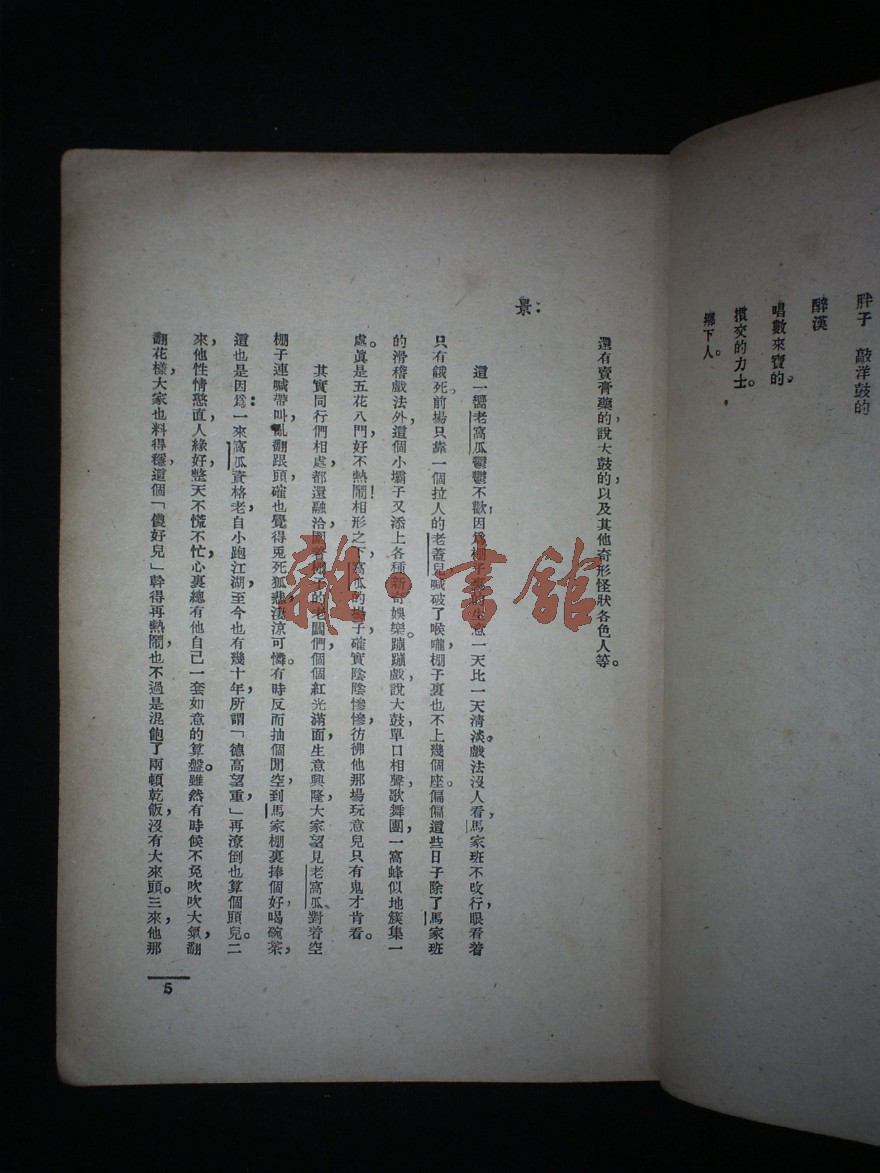 胖子　敲洋鼓的
醉漢
唱數來寶的。
摜交的力士。
鄉下人。
還有賣膏藥的，說大鼓的，以及其他奇形怪狀各色人等。
景：
這一嚮老窩瓜鬱鬱不歡，因爲棚子裏的生意一天比一天清淡。戲法沒人看，馬家班不改行眼看着
只有餓死。前場只靠一個拉人的老蓋兒喊破了喉嚨，棚子裏也不上幾個座。偏偏這些日子除了馬家班
的滑稽戲法外，這個小壩子又添上各種新奇娛樂。蹦蹦戲，說大鼓，單口相聲，歌舞團，一窩蜂似地簇集一
處。眞是五花八門，好不熱鬧！相形之下，窩瓜的場子確實陰陰慘慘，彷彿他那場玩意兒只有鬼才肯看。
其實同行們相處都還融洽，圍着棚子的老闆們個個紅光滿面，生意興隆，大家望見老窩瓜對着空
棚子連喊帶叫，亂翻跟頭，確也覺得兎死狐悲，淒涼可憐。有時反而抽個閒空，到馬家棚裏捧個好，喝碗茶，
這也是因爲：一來窩瓜資格老，自小跑江湖，至今也有幾十年，所謂「德高望重」，再潦倒也算個頭兒。二
來，他性情憨直，人緣好，整天不慌不忙，心裏總有他自己一套如意的算盤。雖然有時候不免吹吹大氣，翻
翻花樣，大家也料得穩，這個「儍好兒」幹得再熱鬧也不過是混飽了兩頓乾飯，沒有大來頭。三來，他那
5
雜·書館